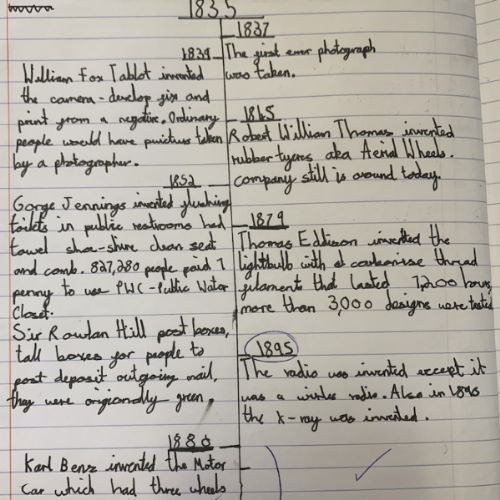 1835
1837
The first ever photograph
was taken.
1839
William Fox Tablot invented
the camera - develop fix and
print from a negative. Ordinary
people would have picitures taken
by a photographer.
1845
Robert William Thomas invented
rubber tyers aka Aerial Wheels.
company still is around today.
1852
Gorge Jennings invented flushing
toilets in public restrooms had
towel shoe-shine clean seat
and comb. 827,280 people paid 1
penny to use PWC - Public Water
Closet.
Sir Rowlan Hill post boxes,
tall boxes for people to
post deposit outgoing mail,
they were origeonally green.
1879
Thomas Eddison invented the
lightbulb with a carbonise thread
filament that lasted 1,200 hours,
more than 3,000 designs were tested
1895
The radio was invented except it
was a wirles radio. Also in 1895
the X-ray was invented.
1886
Karl Benz invented the Motor
Car which had three wheels